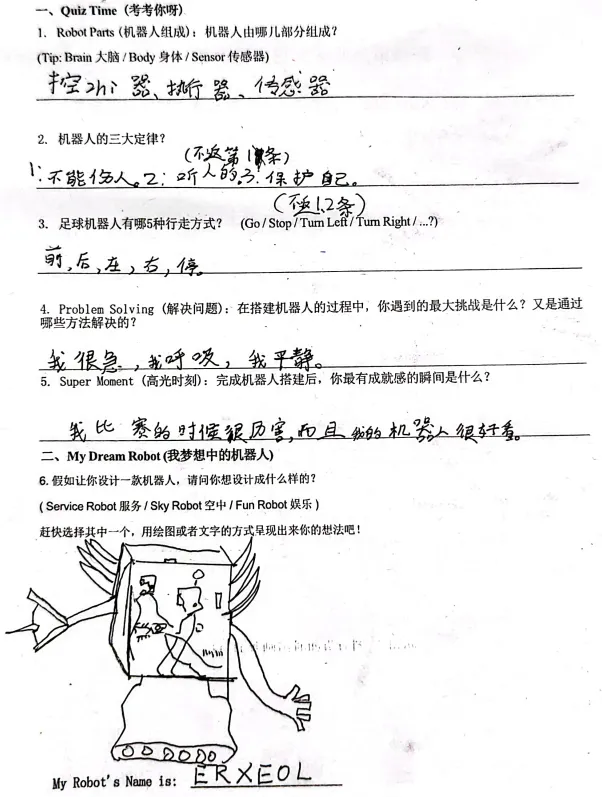 一、Quiz Time（考考你呀）
1. Robot Parts (机器人组成)：机器人由哪儿部分组成？
(Tip: Brain 大脑 / Body 身体 / Sensor 传感器)
控zhi 器、执行 器、传感 器
2. 机器人的三大定律？
(不返第1条)
1:不能伤人。2：听人的。3:保护 自己。
(不返1、2条)
3. 足球机器人有哪5种行走方式？ (Go / Stop / Turn Left / Turn Right / ...?)
前，后，左，右，停。
4. Problem Solving (解决问题)：在搭建机器人的过程中，你遇到的最大挑战是什么？又是通过
哪些方法解决的？
我 很急，我呼吸，我平静。
5. Super Moment (高光时刻)：完成机器人搭建后，你最有成就感的瞬间是什么？
我比 赛的时候很厉害，而且 我的机器人很好看。
二、My Dream Robot (我梦想中的机器人)
6. 假如让你设计一款机器人，请问你想设计成什么样的？
( Service Robot 服务 / Sky Robot 空中 / Fun Robot 娱乐 )
赶快选择其中一个，用绘图或者文字的方式呈现出来你的想法吧！
My Robot's Name is: ERXEOL